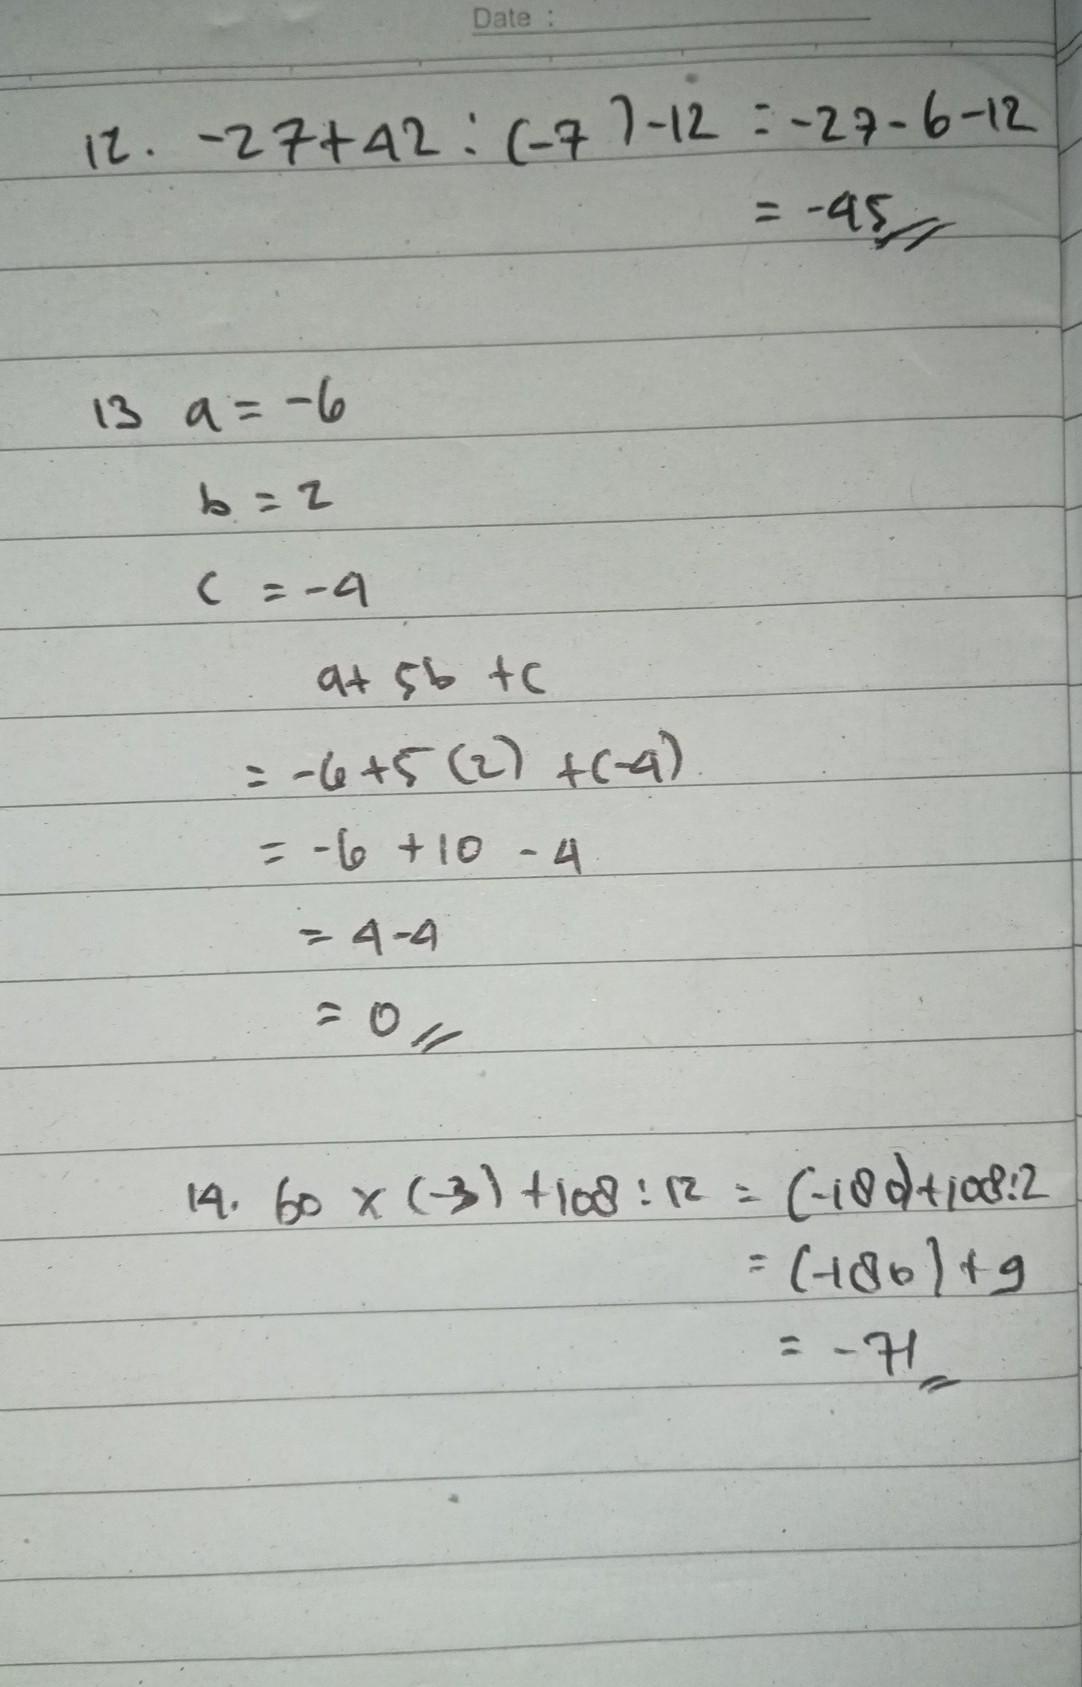 Date :
12. -27+42 : (-7)-12 = -27-6-12
= -45
13 a = -6
b = 2
c = -4
a+ 5b +c
= -6+5 (2) +(-4)
= -6 +10 - 4
= 4-4
= 0
14. 60 x (-3) +108 : 12 = (-180)+108:2
= (-180) + 9
= -71